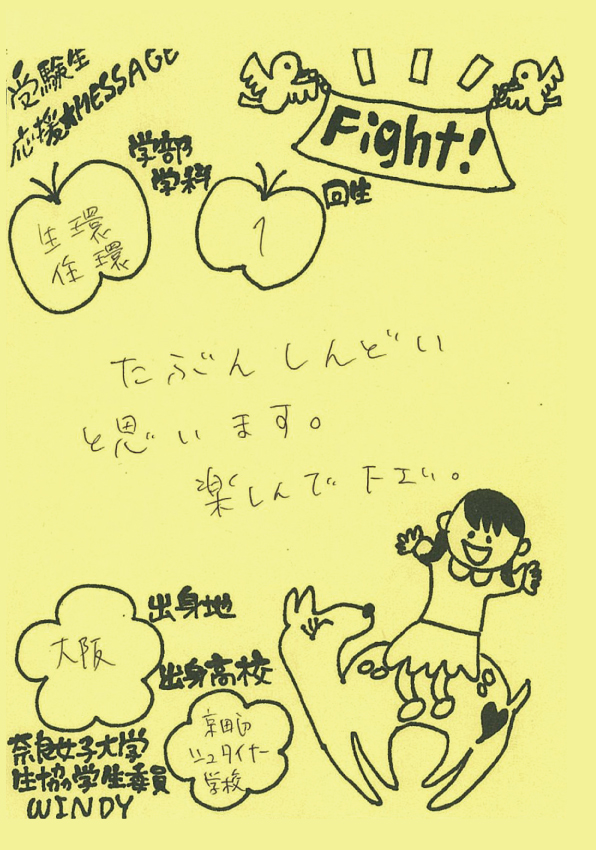 受験生
応援★MESSAGE
Fight!
学部
学科
生環
住環
回生
1
たぶんしんどい
と思います。
楽しんで下エい。
出身地
大阪
出身高校
京田辺
シュタイナー
学校
奈良女子大学
生協の学生委員
WINDY